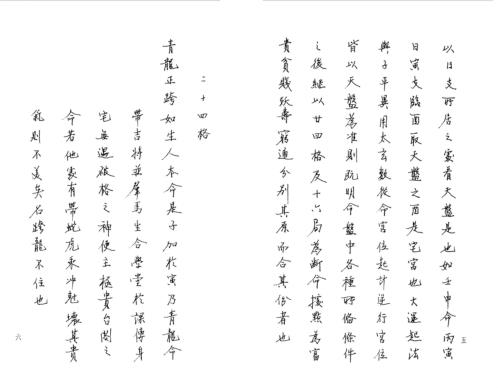 以日支所居之處看天盤是也如壬申命丙寅
日寅支臨酉取天盤之酉是宅宮也大運起法
與子平異用太玄數從命宮位起計逆行宮位
皆以天盤為准則既明命盤中各種所備條件
之後繼以廿四格及十六局為斷命接點為富
貴貧賤夭壽窮通分別其原而合其份者也
五
二十四格
青龍正跨如生人本命是子加於寅乃青龍命
帶吉將并羣馬生合學堂於課傳身
宅無遇破格之神便主極貴台閣之
命若他處有帶蛇虎乘冲魁壞其貴
氣則不美矣名跨龍不住也
六